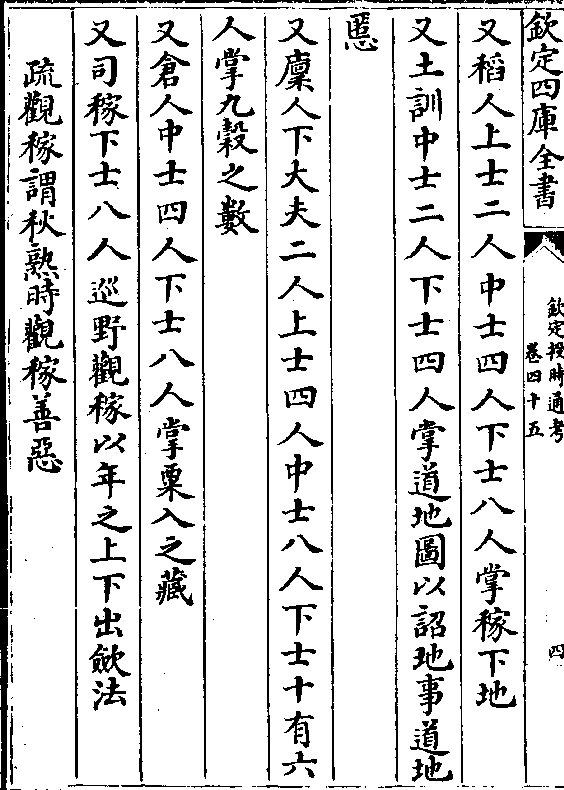 欽定四庫全書
欽定授時通考
卷四十五
四
又稻人上士二人中士四人下士八人掌稼下地
又土訓中士二人下士四人掌道地圖以詔地事道地
慝
又廩人下大夫二人上士四人中士八人下士十有六
人掌九穀之數
又倉人中士四人下士八人掌粟入之藏
又司稼下士八人巡野觀稼以年之上下出歛法
疏觀稼謂秋熟時觀稼善惡